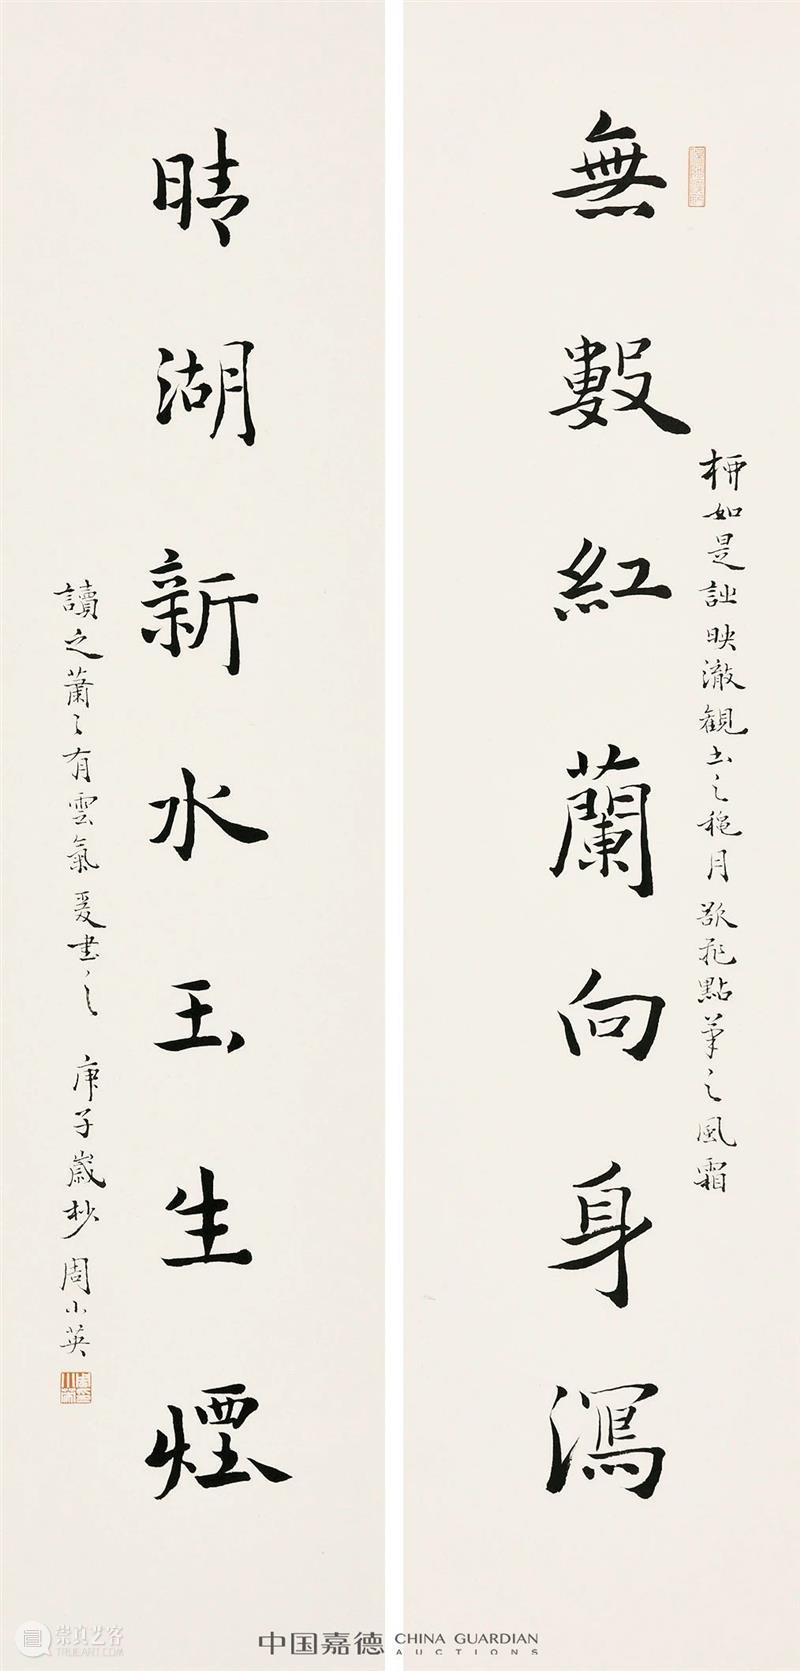 無數紅蘭向身瀉
柳如是詩映澈觀書之龝月欲飛點筆之風霜
晴湖新水玉生煙
讀之蕭〻有雲氣爰書之 庚子歲杪 周小英
崇真艺客
中国嘉德 CHINA GUARDIAN
AUCTIONS